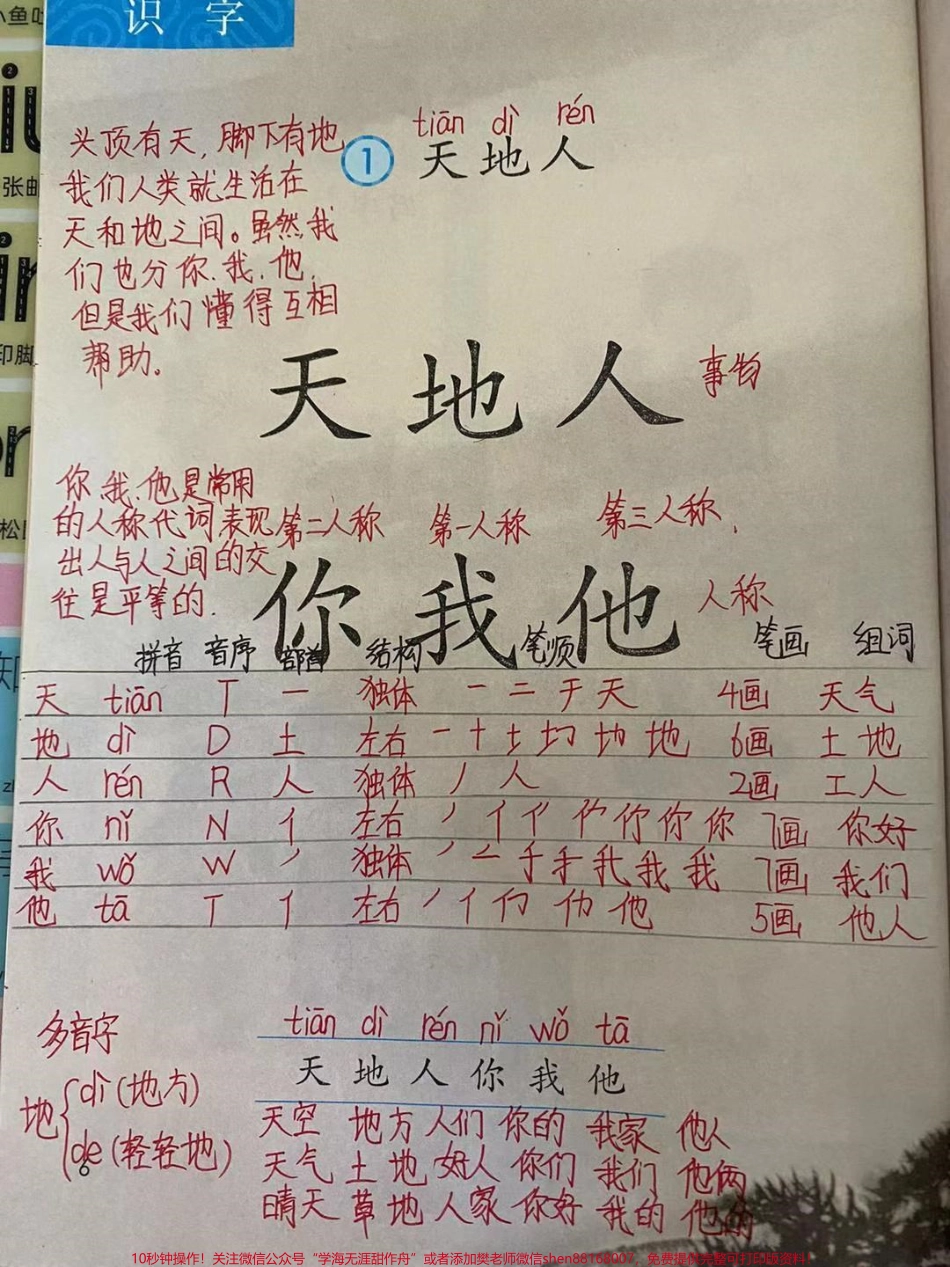 识 字
tiān dì rén
① 天地人
头顶有天,脚下有地
我们人类就生活在
天和地之间。虽然我
们也分你、我、他,
但是我们懂得互相
帮助。
天 地 人 事物
你、我、他是常用
的人称代词表现
出人与人之间的交
往是平等的.
第二人称 第一人称 第三人称.
你 我 他 人称
拼音 音序 部首 结构 笔顺 笔画 组词
天 tiān T 一 独体 一 二 于 天 4画 天气
地 dì D 土 左右 一 十 土 圹 地 6画 土地
人 rén R 人 独体 丿 人 2画 工人
你 nǐ N 亻 左右 丿 亻 你 7画 你好
我 wǒ W 丿 独体 丿 二 于 手 我 我 7画 我们
他 tā T 亻 左右 丿 亻 他 5画 他人
多音字
地 dì (地方)
de (轻轻地)
tiān dì rén nǐ wǒ tā
天 地 人 你 我 他
天空 地方 人们 你的 我家 他人
天气 土地 好人 你们 我们 他俩
晴天 草地 人家 你好 我的 他的
10秒钟操作!关注微信公众号“学海无涯甜作舟”或者添加樊老师微信shen88168007,免费提供完整可打印版资料!
小鱼吐
iu
张邮
印脚
松